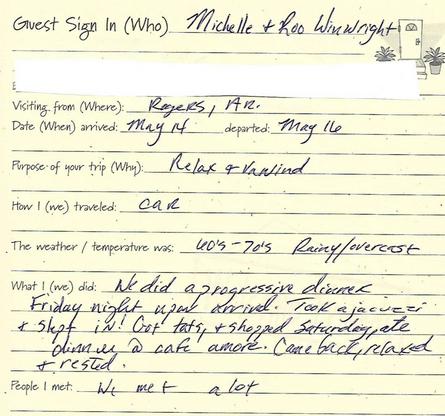 Guest Sign In (Who) Michelle & Roo Winwright
Visiting from (Where): Rogers, AR.
Date (When) arrived: May 14 departed: May 16
Purpose of your trip (Why): Relax & Unwind
How I (we) traveled: car
The weather / temperature was: 60's-70's Rainy/overcast
What I (we) did: We did a progressive dinner
Friday night upon arrival. Took a jacuzzi
& slept in! Got tats, & shopped Saturday, ate
dinner @ cafe amore. Came back, relaxed
& rested.
People I met: We met a lot